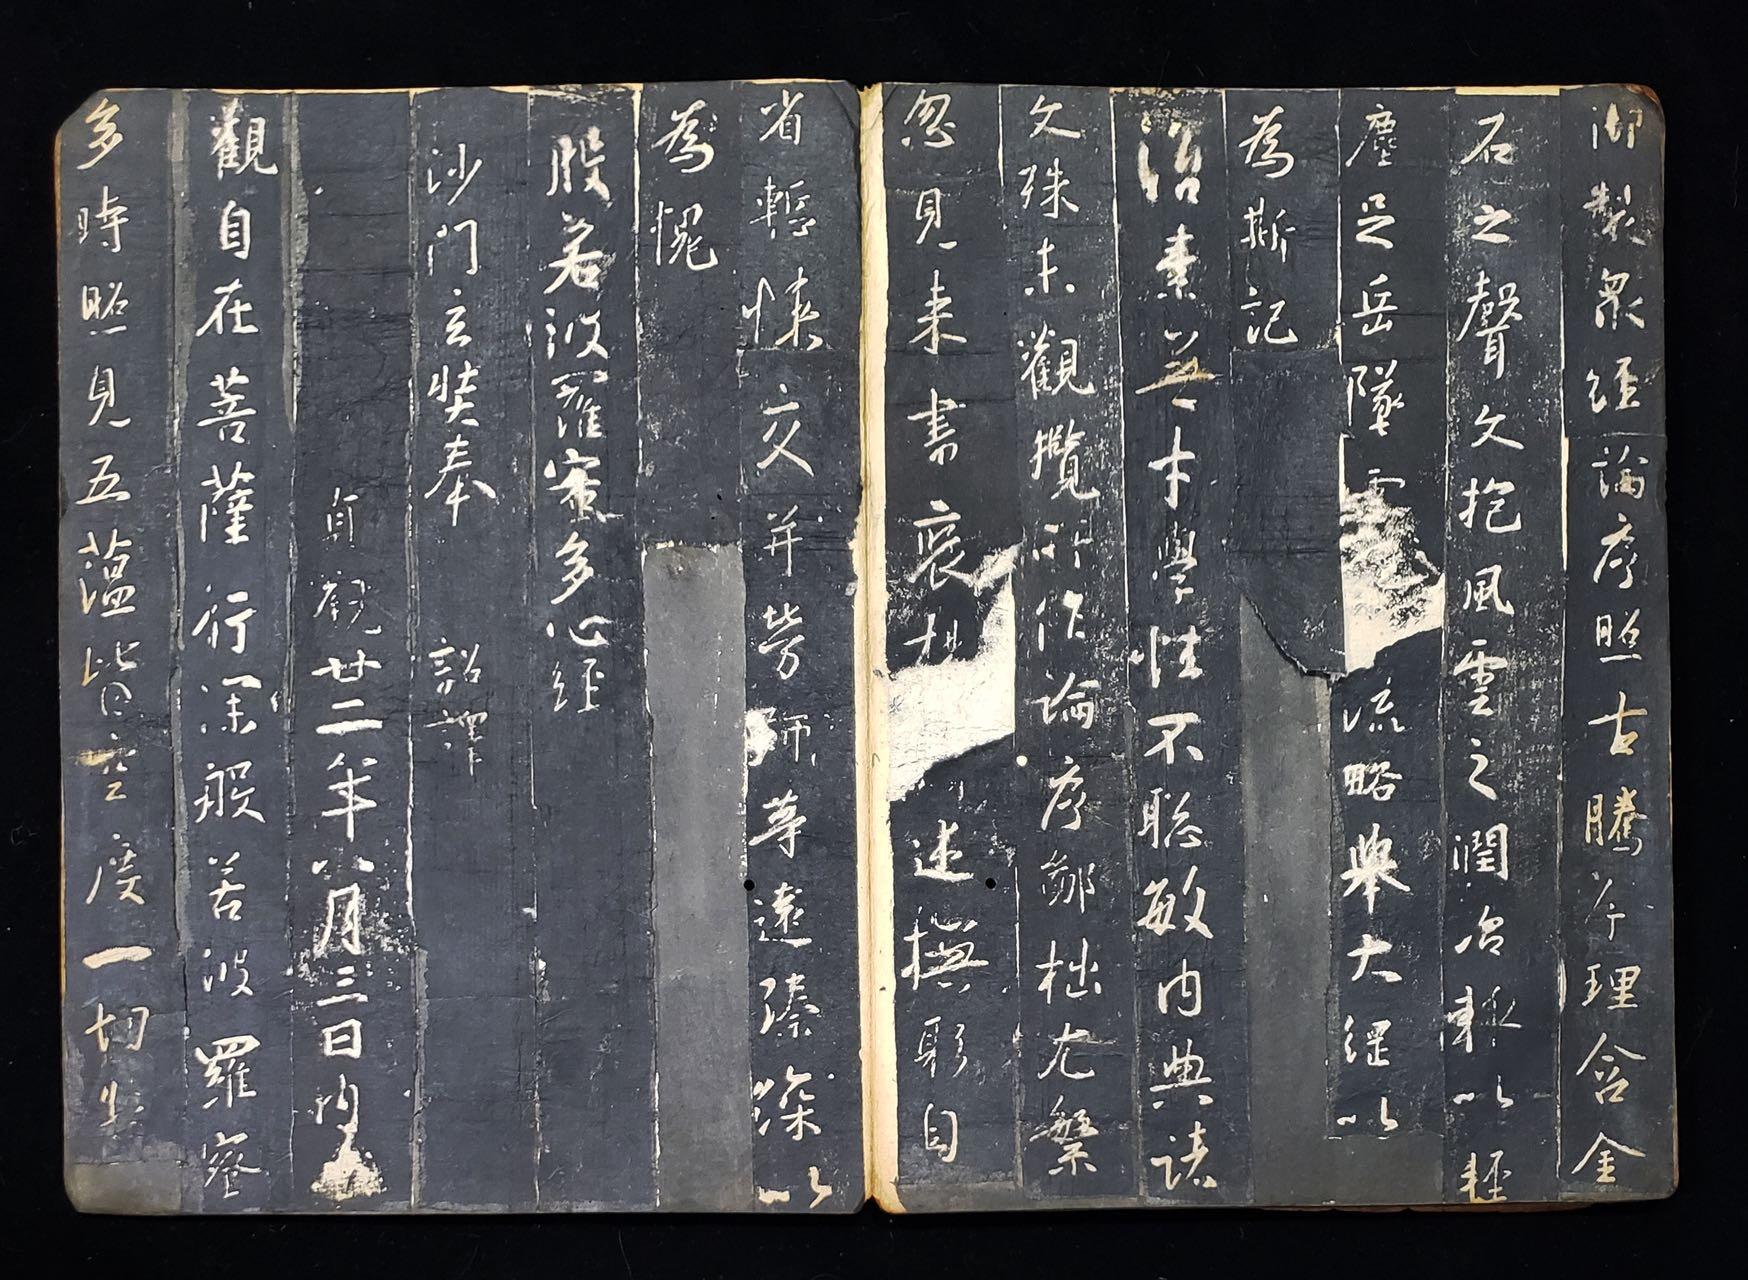 御製眾經論序照古騰今理含金
石之聲文抱風雲之潤治輒以輕
塵足岳墜流略舉大綱以
為斯記
治素無才學性不聰敏內典諸
文殊未觀攬所作論序鄙拙尤繁
忽見來書褒述撫躬自
省慙悚交并勞師等遠臻深以
為愧
般若波羅蜜多心經
沙門玄奘奉 詔譯
貞觀廿二年八月三日內
觀自在菩薩行深般若波羅蜜
多時照見五蘊皆空度一切苦